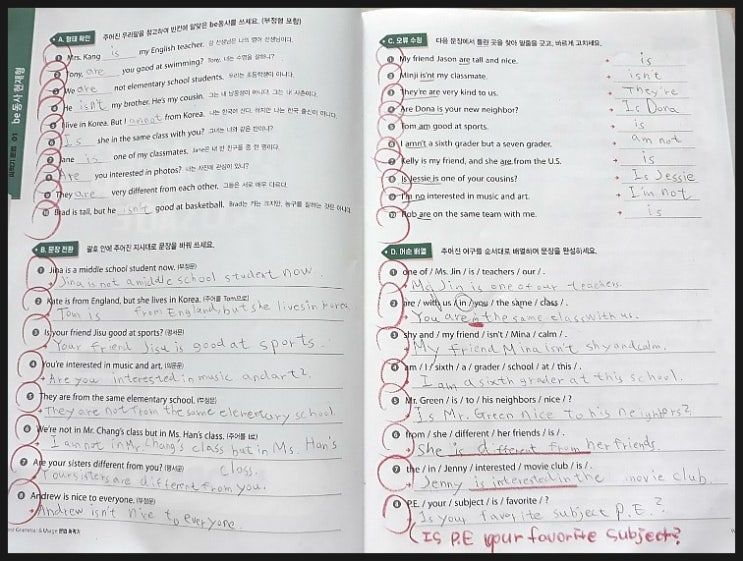 be동사 현재형
A. 형태 확인 주어진 우리말을 참고하여 빈칸에 알맞은 be동사를 쓰세요. (부정형 포함)
1 Mrs. Kang is my English teacher. 강 선생님은 나의 영어 선생님이다.
2 Tony, are you good at swimming? Tony, 너는 수영을 잘하니?
3 We are not elementary school students. 우리는 초등학생이 아니다.
4 He isn't my brother. He's my cousin. 그는 내 남동생이 아니다. 그는 내 사촌이다.
5 I live in Korea. But I from Korea. 나는 한국에 산다. 하지만 나는 한국 출신이 아니다.
6 Is she in the same class with you? 그녀는 너와 같은 반이니?
7 Jane is one of my classmates. Jane은 내 반 친구들 중 한 명이다.
8 Are you interested in photos? 너는 사진에 관심이 있니?
9 They are very different from each other. 그들은 서로 매우 다르다.
10 Brad is tall, but he isn't good at basketball. Brad는 키는 크지만, 농구를 잘하는 것은 아니다.
B. 문장 전환 괄호 안에 주어진 지시대로 문장을 바꿔 쓰세요.
1 Jina is a middle school student now. (부정문)
Jina is not a middle school student now.
2 Kate is from England, but she lives in Korea. (주어를 Tom으로)
Tom is from England, but she lives in Korea
3 Is your friend Jisu good at sports? (평서문)
Your friend Jisu is good at sports.
4 You're interested in music and art. (의문문)
Are you interested in music and art?
5 They are from the same elementary school. (부정문)
They are not from the same elementary school
6 We're not in Mr. Chang's class but in Ms. Han's class. (주어를 I로)
I am not in Mr. Chang's class but in Ms. Han's
class.
7 Are your sisters different from you? (평서문)
Your sisters are different from you.
8 Andrew is nice to everyone. (부정문)
Andrew isn't nice to everyone.
C. 오류 수정 다음 문장에서 틀린 곳을 찾아 밑줄을 긋고, 바르게 고치세요.
1 My friend Jason are tall and nice. → is
2 Minji is'nt my classmate. → isn't
3 They're are very kind to us. → They're
4 Are Dona is your new neighbor? → Is Dona
5 Tom am good at sports. → is
6 I amn't a sixth grader but a seven grader. → am not
7 Kelly is my friend, and she are from the U.S. → is
8 Is Jessie is one of your cousins? → Is Jessie
9 I'm no interested in music and art. → I'm not
10 Rob are on the same team with me. → is
D. 어순 배열 주어진 어구를 순서대로 배열하여 문장을 완성하세요.
1 one of / Ms. Jin / is / teachers / our / .
Ms. Jin is one of our teachers.
2 are / with us / in / you / the same / class / .
You are in the same class with us.
3 shy and / my friend / isn't / Mina / calm / .
My friend Mina isn't shy and calm.
4 am / I / sixth / a / grader / school / at / this / .
I am a sixth grader at this school.
5 Mr. Green / is / to / his neighbors / nice / ?
Is Mr. Green nice to his neighbors?
6 from / she / different / her friends / is / .
She is different from her friends.
7 the / in / Jenny / interested / movie club / is / .
Jenny is interested in the movie club.
8 P.E. / your / subject / is / favorite / ?
Is your favorite subject P.E.?
(Is P.E your favorite subject?